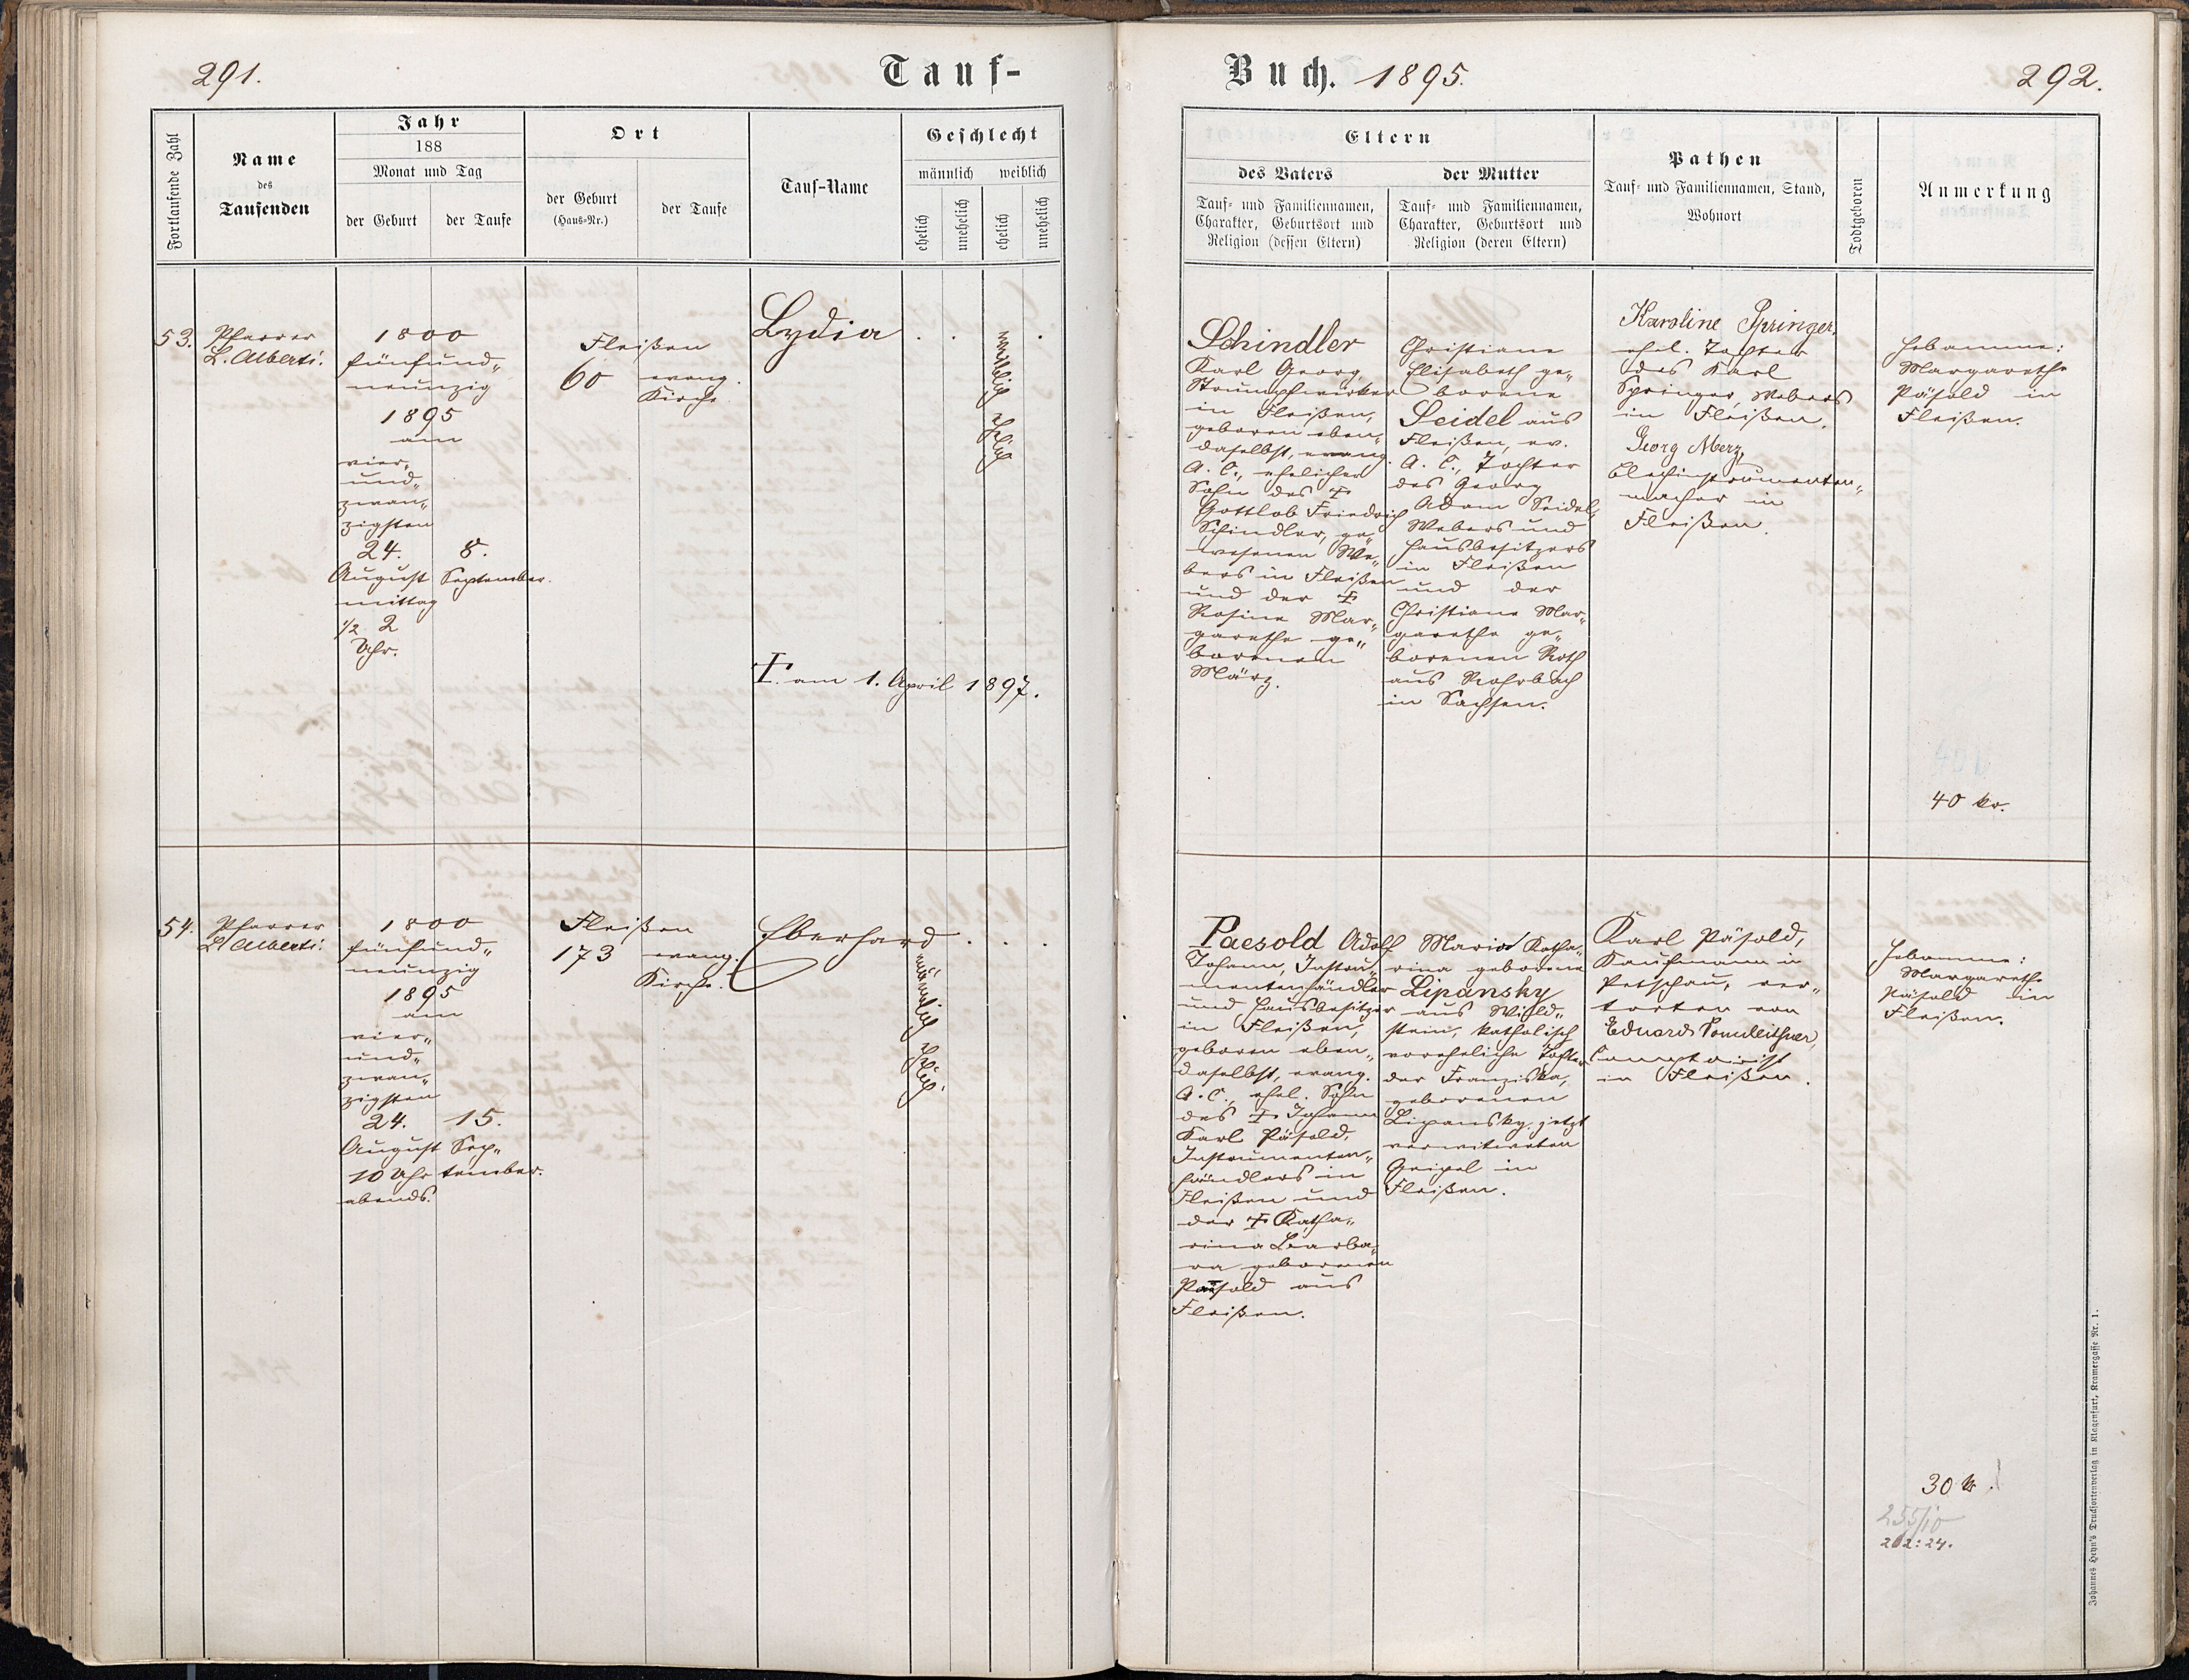 291.
Tauf-
Fortlaufende Zahl
Name
des
Taufenden
Jahr
188
Monat und Tag
der Geburt
der Taufe
Ort
der Geburt
(Haus-Nr.)
der Taufe
Tauf-Name
Geschlecht
männlich
weiblich
ehelich
unehelich
ehelich
unehelich
53.
Pfarrer
L. Alberti.
1800
fünfund„
neunzig
1895
am
vier„
und„
zwan„
zigsten
24.
August
mittag
½ 2
Uhr.
8.
September.
Fleißen
60
evang.
Kirche
Lydia
weiblich
ehelich
☩ am 1. April 1897.
54.
Pfarrer
L. Alberti.
1800
fünfund„
neunzig
1895
am
vier„
und„
zwan„
zigsten
24.
August
10 Uhr
abends.
15.
Sep„
tember.
Fleißen
173
evang.
Kirche.
Eberhard
männlich
ehelich
Buch. 1895.
292.
Eltern
des Vaters
der Mutter
Tauf- und Familiennamen,
Charakter, Geburtsort und
Religion (dessen Eltern)
Tauf- und Familiennamen,
Charakter, Geburtsort und
Religion (deren Eltern)
Pathen
Tauf- und Familiennamen, Stand,
Wohnort
Todtgeboren
Anmerkung
Schindler
Karl Georg
Strumpfwirker
in Fleißen,
geboren eben„
daselbst, evang.
A. C., ehelicher
Sohn des ☩
Gottlob Friedrich
Schindler, ge„
wesenen We„
bers in Fleißen
und der ☩
Rosine Mar„
garethe ge„
borenen
März.
Christiane
Elisabeth ge„
borene
Seidel aus
Fleißen, ev.
A. C., Tochter
des Georg
Adam Seidel,
Webers und
Hausbesitzers
in Fleißen
und der
Christiane Mar„
garethe ge„
borenen Roth
aus Rohrbach
in Sachsen.
Karoline Springer,
ehel. Tochter
des Karl
Springer, Webers
in Fleißen.
Georg Merz,
Blechinstrumenten„
macher in
Fleißen.
Hebamme:
Margarethe
Päsold in
Fleißen.
40 kr.
Paesold Adolf
Johann, Instru„
mentenhändler
und Hausbesitzer
in Fleißen,
geboren eben„
daselbst, evang.
A. C., ehel. Sohn
des ☩ Johann
Karl Päsold,
Instrumenten„
händlers in
Fleißen und
der ☩ Katha„
rina Barba„
ra geborenen
Päsold aus
Fleißen.
Maria Katha„
rina geborene
Lipansky
aus Wild„
stein, katholisch
voreheliche Tochter
der Franziska,
geborenen
Lipansky, jetzt
verwitweten
Geipel in
Fleißen.
Karl Päsold,
Kaufmann in
Petschau, ver„
treten von
Eduard
Comptoirist
in Fleißen.
Hebamme:
Margarethe
Päsold in
Fleißen.
30 kr.
255/10
202:24.
Johannes Heyn's Drucksortenverlag in Klagenfurt, Kramergasse Nr. 1.